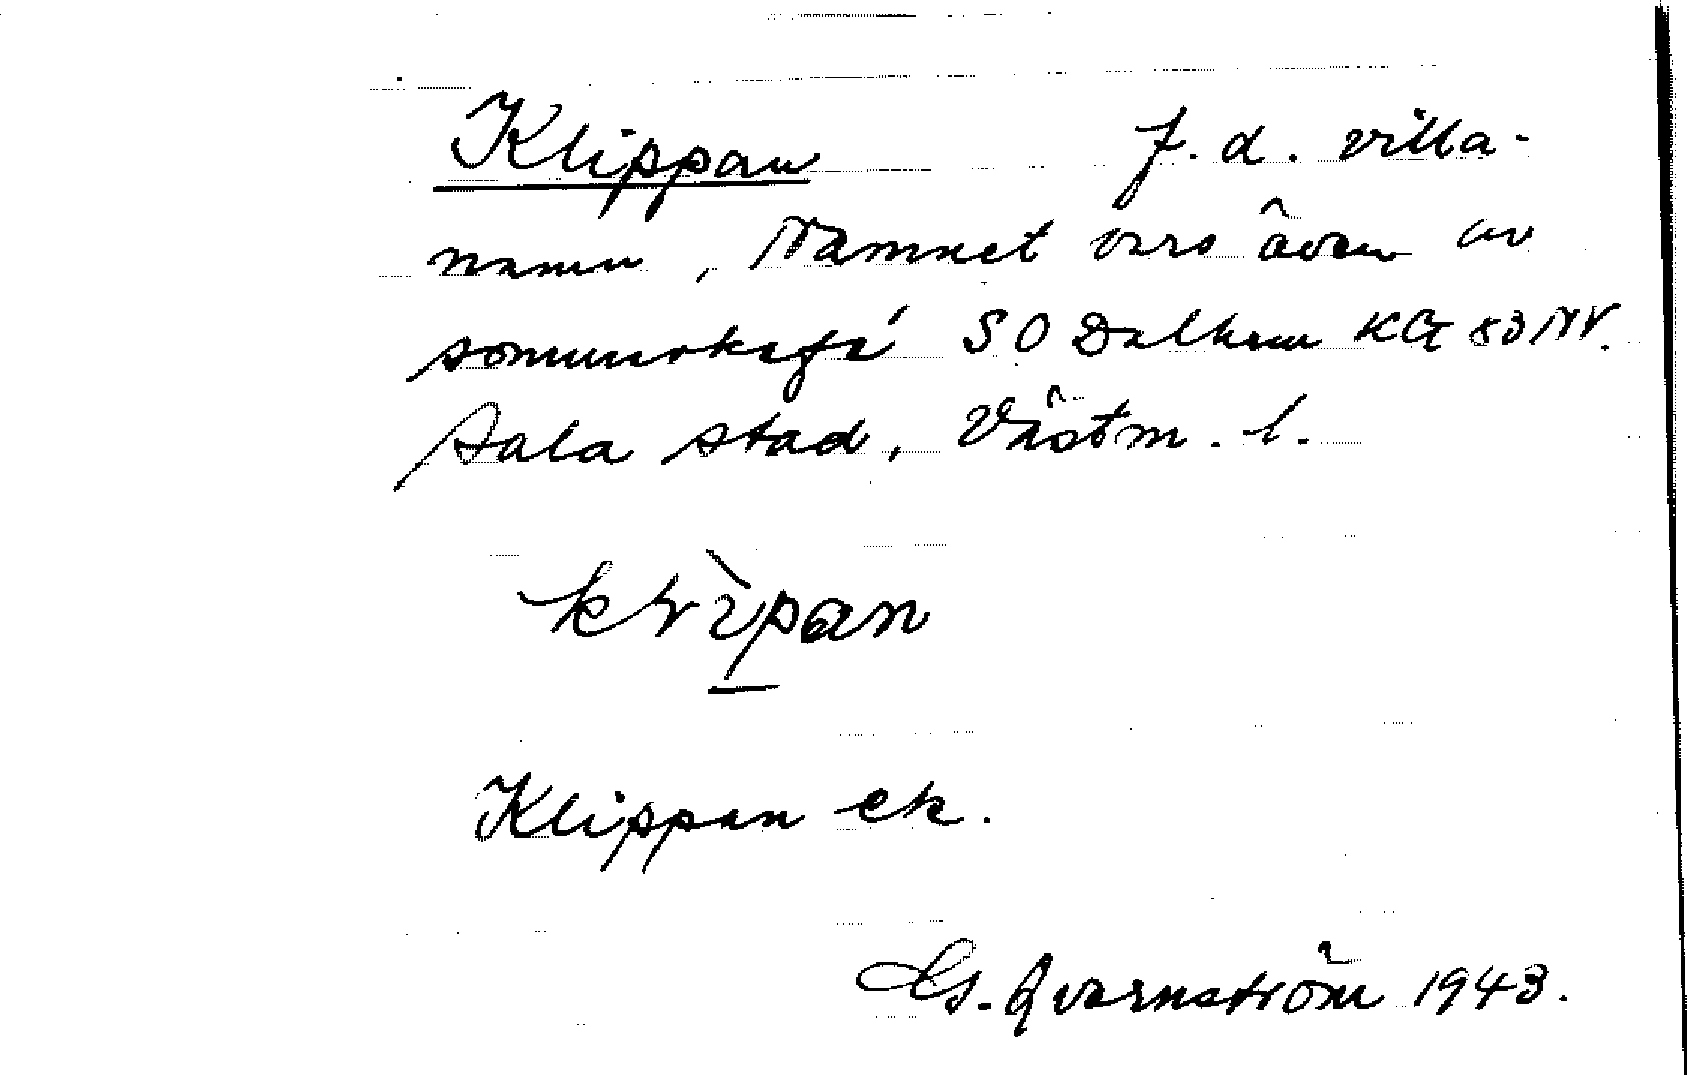 Klippan f. d. villa-
namn, Namnet bars även av
sommarkafé SO Dalhem KG 83 NV.
Sala stad, Västm. l.
klìpan
Klippan ek.
G. Qvarnström 1943.